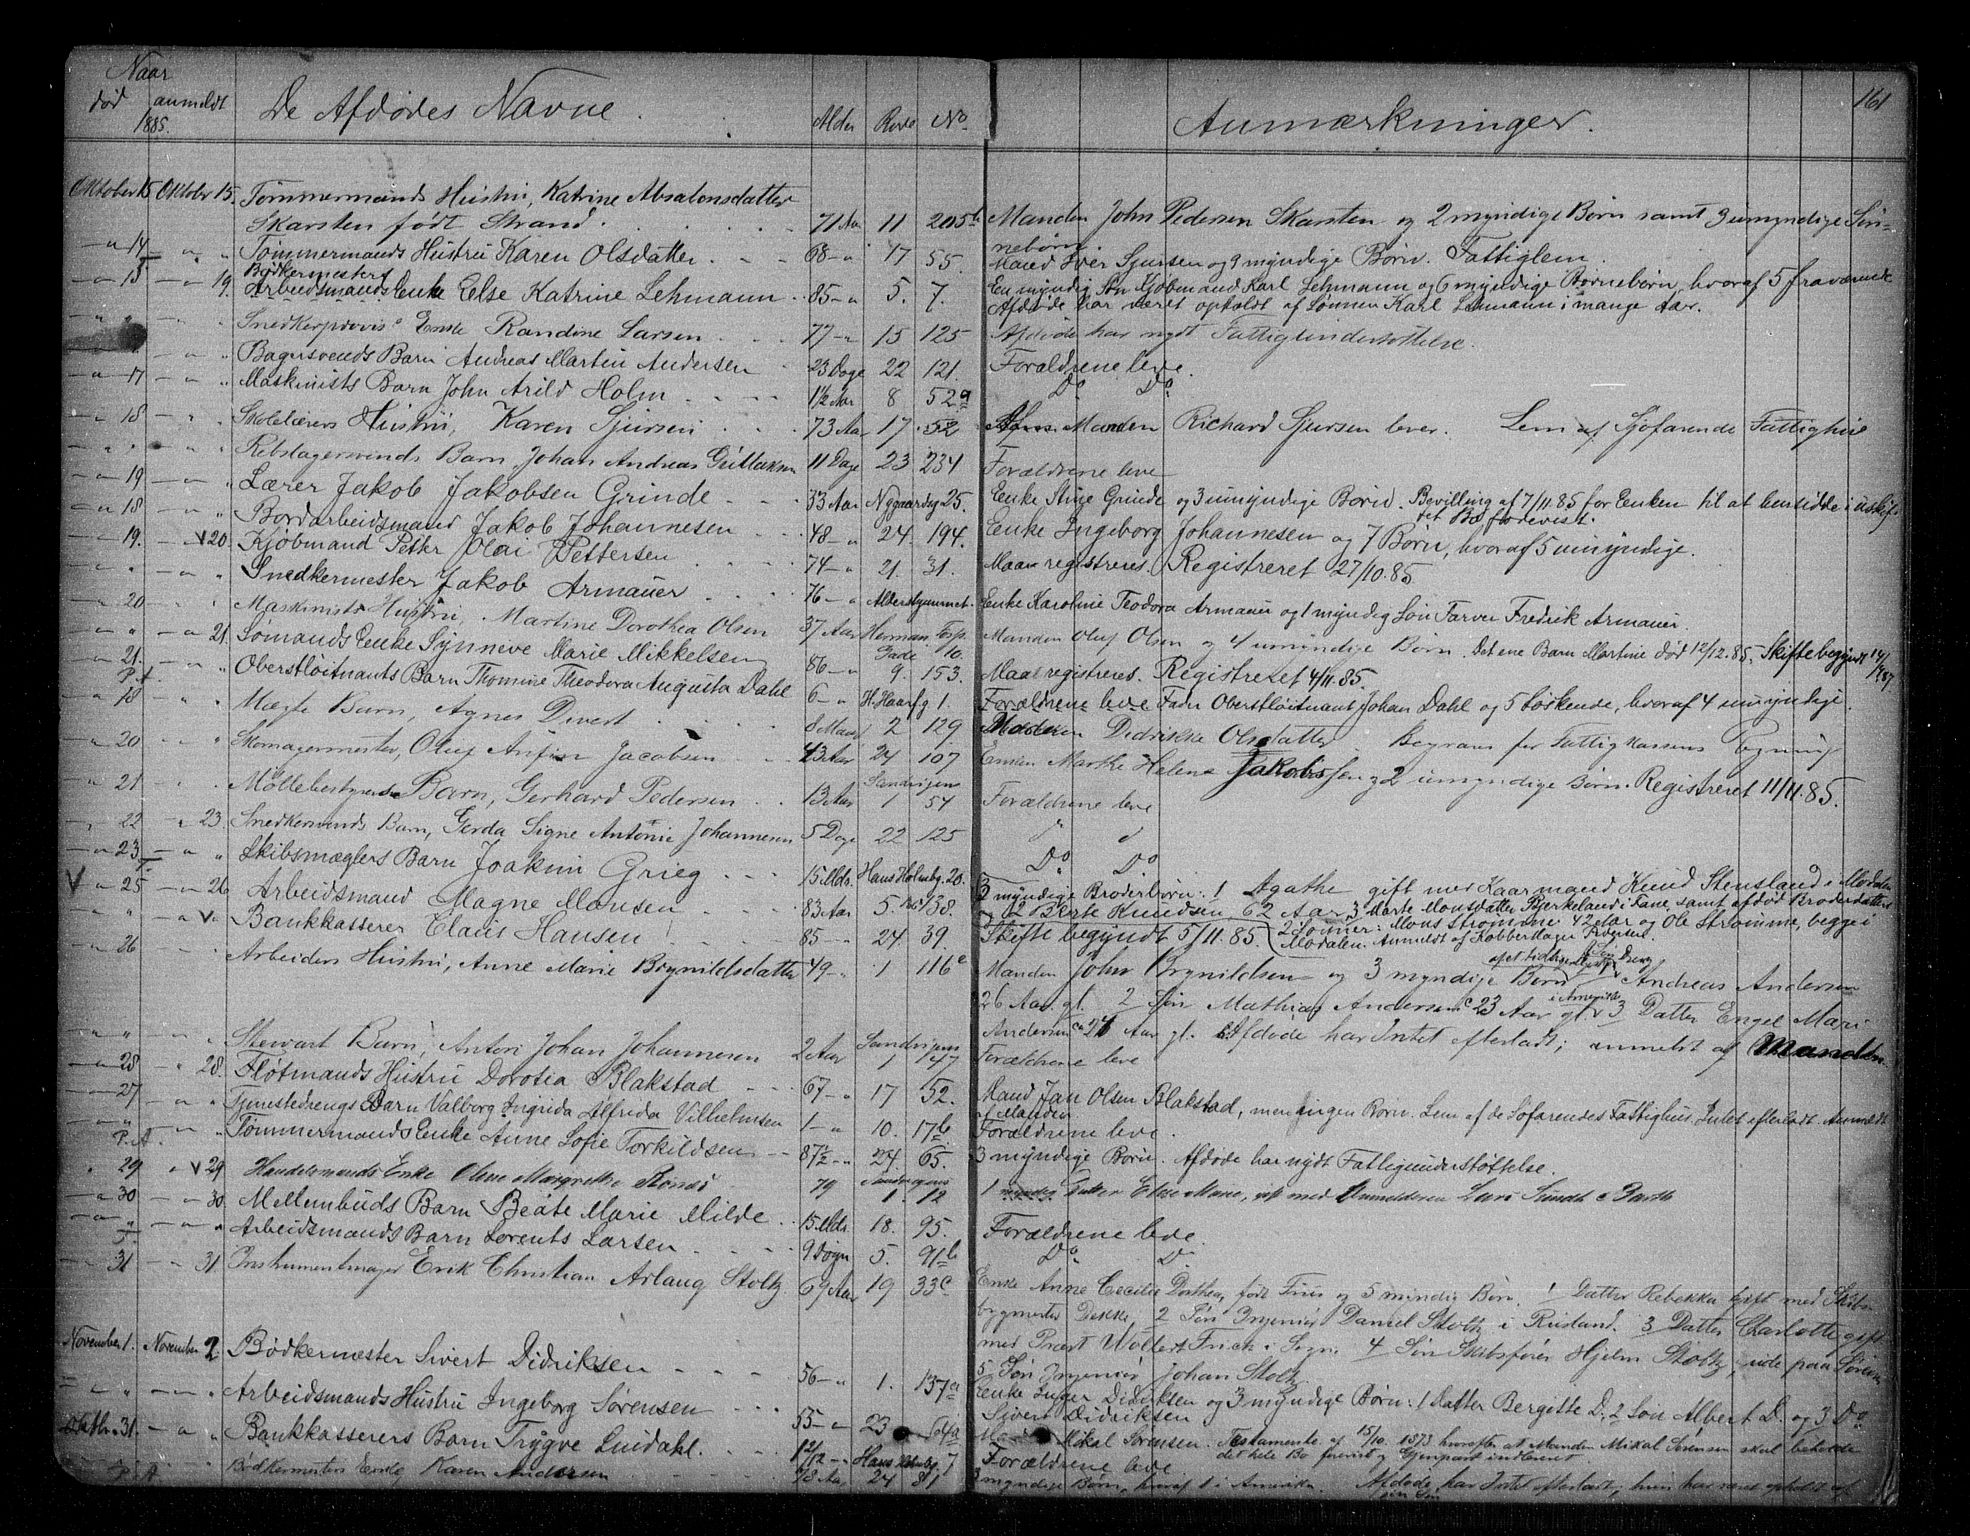 161
Naar
død anmeldt De Afdødes Navne. Alder Rode No. Anmærkninger.
1885.
Oktober 15 Oktober 15. Tømmermands Hustru, Katrine Absalonsdatter
Skarsten født Strand. 71 Aar 11 205b Manden John Pedersen Skarsten og 2 myndige Børn samt 3 umyndige Søn-
nebørn.
14 Tømmermands Hustru Karen Olsdatter 68 17 55. Mand Iver Sjursen og 9 myndige Børn. Fattiglem.
Bødkermesters
15 19. Arbeidsmands Enke Else Katrine Lehmann 85 5. 7. En myndig Søn Kjøbmand Karl Lehmann og 6 myndige Børnebørn, hvoraf 5 fraværende
Afdøde har været opholdt af Sønnen Karl Lehmann i mange Aar.
Snedker Enke Randine Larsen 77 15 125 Afdøde har nydt Fattigunderstøttelse.
Bagersvends Barn Andreas Martin Andersen 23 Dage 22 121. Forældrene leve.
17 Maskinists Barn John Arild Holm 1½ Aar 8 52a Do Do
18 Skolelærers Hustru, Karen Sjursen 73 Aar 17 52 Manden Richard Sjursen lever. Lem af Sjøfarende Fattighus
Rebslagersvends Barn Johan Andreas 11 Dage 23 234 Forældrene leve
19 Lærer Jakob Jakobsen Grinde 33 Aar Nygaardsg 25. Enke Grinde og 3 umyndige Børn. Bevilling af 7/11.85 for Enken til at hensidde i uskif-
tet Bo
18 Bordarbeidsmand Jakob Johannesen 48 24. 194. Enke Ingeborg Johannesen og 7 Børn, hvoraf 5 umyndige.
19. 20. Kjøbmand Petter Olai Pettersen 74 21. 31. Maa registreres. Registreret 27/10.85
Snedkermester Jakob Armauer 76 Alderstjemmet. Enke Karoline Teodora Armauer og 1 myndig Søn Farver Fredrik Armauer.
20 Maskinists Hustru, Martine Dorothea Olsen 37 Aar Herman Fosp. Gade 10. Manden Oluf Olsen og 4 umyndige Børn. Det ene Barn Martine død 12/12.85. Skifte begyndt
21. Sømands Enke Synneve Marie Mikkelsen 86 9. 153. Maa registreres. Registreret 4/11.85.
21. Oberstløitnants Barn Thomine Theodora Augusta Dahl 6 H. Haarfg 1. Forældrene leve Fader Oberstløitnant Johan Dahl og 5 Søskende, hvoraf 4 umyndige.
18 Barn, Agnes 8 Maan 2 129 Moderen Didrikke Olsdatter. Begraves for Fattigkassens Regning
20 Skomagermester, Oluf Jacobsen 43 Aar 24 107 Enken Marthe Helene Jakobsen og 2 umyndige Børn. Registreret 11/11.85.
21 Møllebestyrers Barn, Gerhard Pedersen 13 Aar Sandvigens 1 54 Forældrene leve
22 23. Snedkersvends Barn, Gerda Signe Antonie Johannesen 5 Dage 22 125
23 Skibsmæglers Barn Joakim Grieg 15 Mdr. Hans Holmbg. 20. Do Do
25 26 Arbeidsmand Magne Monsen 83 Aar 5. 138. 3 myndige Broderbørn: 1 Agathe gift med Kaarmand Knud Stensland i Modalen
2 Berte Knudsen 62 Aar, 3 Marte Monsdatter samt afdød Broderdatters
Bankkasserer Claus Hansen 85 24. 39. Skifte begyndt 5/11.85. 2 Sønner: Mons Strømme 42 Aar og Ole Strømme, begge i
Modalen. Anmeldt af
26 Arbeiders Hustru, Anne Marie Brynildsdatter 49 1 116c Manden John Brynildsen og 3 myndige Børn 1 Andreas Andersen
26 Aar gl. 2 Søn Mathias Andersen 23 Aar gl. 3 Datter Engel Mari
Andersen 21 Aar gl. Afdøde har Intet efterladt; anmeldt af Manden.
Stewart Barn, Anton Johan Johannesen 2 Aar Sandvigens 1 147 Forældrene leve
28 28. Fløtmands Hustru Dorotea Blakstad 67 17 52. Mand Jan Olsen Blakstad, men ingen Børn. Lem af de Søfarendes Fattighus. Intet efterladt. Anmeldt
af Manden
27 Tjenestedrengs Barn Valborg Ingrida Alfrida Vilhelmsen 1 10. 17b Forældrene leve.
Tømmermands Enke Anne Sofie Torkildsen 87½ 24. 65. 3 myndige Børn. Afdøde har nydt Fattigunderstøttelse.
29 29 Handelsmands Enke Oline Margrethe 79 Sandvigens 1. 12 1 myndig Datter Else Marie, gift med Anmelderen
30 30. Mellembuds Barn Beate Marie Milde 15 Mdr. 18. 95. Forældrene leve.
Arbeidsmands Barn Lorents Larsen 9 Døgn 5. 91b Do D
31 31. Instrumentmager Erik Christian Arlaug Stoltz 69 Aar 19 33c Enke Anne Cecilie Dorthea, født Friis og 5 myndige Børn. 1 Datter Rebekka gift med Skibs-
bygmester Dekke, 2 Søn Ingeniør Daniel Stoltz i Rusland. 3 Datter Charlotte gift
med Præst Wollert Frich i Sogn. 4 Søn Skibsfører Hjelm Stoltz, ude paa Søen
5 Søn Ingeniør Johan Stoltz
November 1. November 2 Bødkermester Sivert Didriksen 56 1. 137a Enke Inger Didriksen og 3 myndige Børn: 1 Datter Bergitte D., 2 Søn Albert D. og 3 Do
Sivert Didriksen
Arbeidsmands Hustru Ingeborg Sørensen 55 23 Mikal Sørensen. Testamente af 15/10 1873 hvorefter at Manden Mikal Sørensen skal beholde
det hele Bo
Oktbr. 31. Bankkasserers Barn Trygve Lindahl. 1 2/12 Hans Holmbg. 7 Forældrene leve
Bødkermesters Enke Karen Andersen 78 Aar 24 81 3 myndige Børn, hvoraf 1 i Amerika. Afdøde har Intet efterladt; hun har været opholdt af